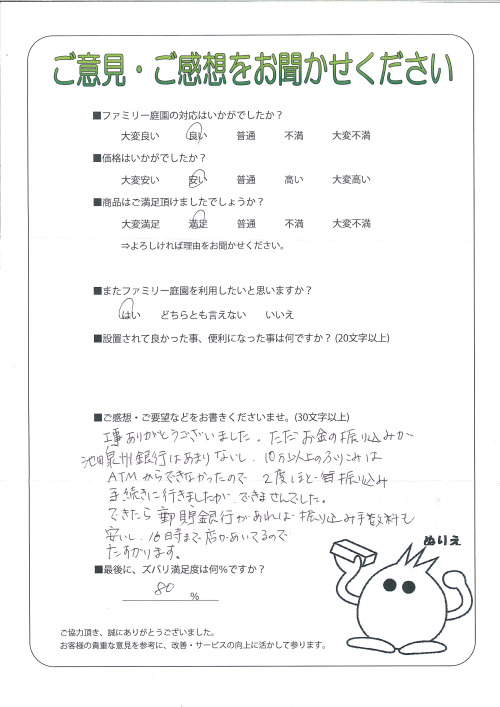 ご意見・ご感想をお聞かせください
■ファミリー庭園の対応はいかがでしたか？
大変良い 良い 普通 不満 大変不満
■価格はいかがでしたか？
大変安い 安い 普通 高い 大変高い
■商品はご満足頂けましたでしょうか？
大変満足 満足 普通 不満 大変不満
⇒よろしければ理由をお聞かせください。
■またファミリー庭園を利用したいと思いますか？
はい どちらとも言えない いいえ
■設置されて良かった事、便利になった事は何ですか？(20文字以上)
■ご感想・ご要望などをお書きくださいませ。(30文字以上)
工事ありがとうございました。ただお金の振り込みが
池田泉州銀行はあまりないし、10万以上のふりこみは
ATMからできなかったので 2度ほど 振り込み
手続きに行きましたが、できませんでした。
できたら郵貯銀行があれば振り込み手数料も
安いし、16時まで店があいてるので
たすかります。
■最後に、ズバリ満足度は何％ですか？
80 %
ぬりえ
ご協力頂き、誠にありがとうございました。
お客様の貴重な意見を参考に、改善・サービスの向上に活かして参ります。